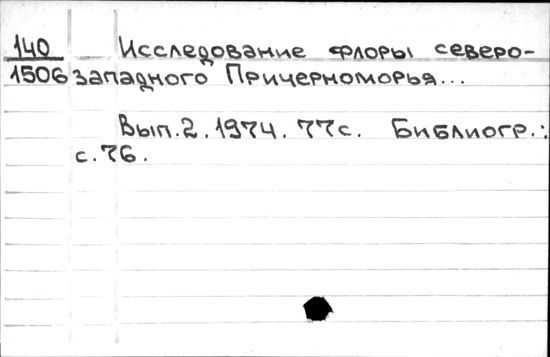 140 Исследование флоры северо-
1506 западного Причерноморья...
Вып.2.1974. 77с. Библиогр.:
с.76.